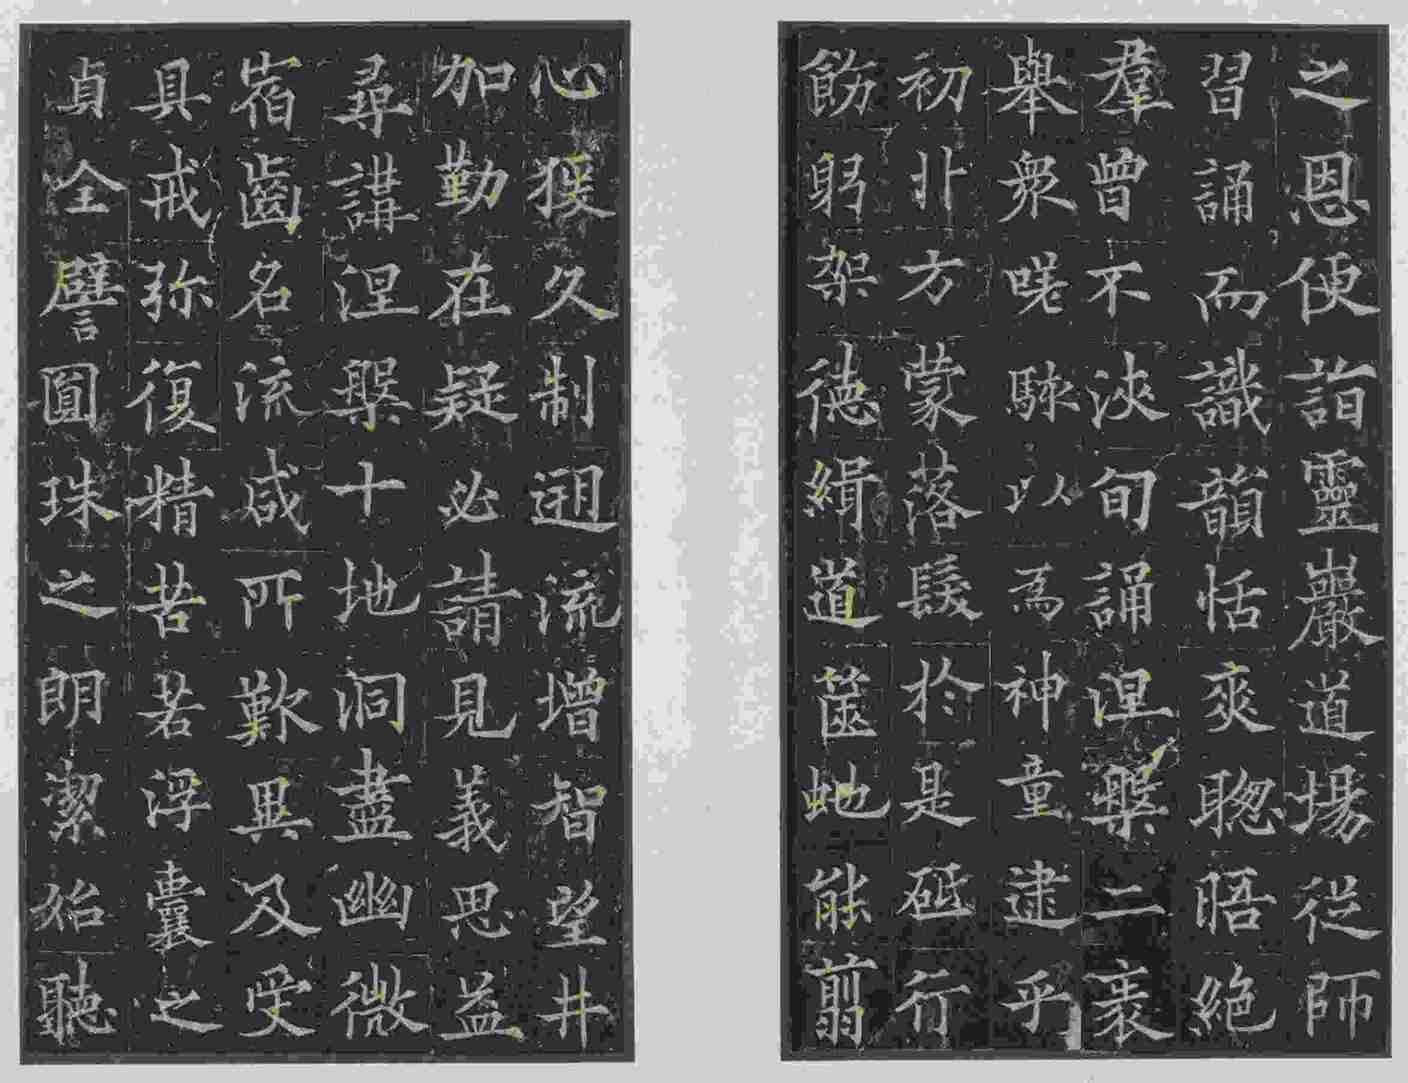 之恩便詣靈巖道場從師
習誦而識韻恬爽聦晤絶
羣曾不浹旬誦涅槃二袠
舉衆嗟駭以為神童逮乎
初丱方蒙落髮於是砥行
飭躬架德緝道篋虵能翦
心猨久制遡流增智望井
加勤在疑必請見義思益
尋講涅槃十地洞盡幽微
宿齒名流咸所歎異及受
具戒弥復精苦若浮囊之
貞全譬圓珠之朗潔始聽